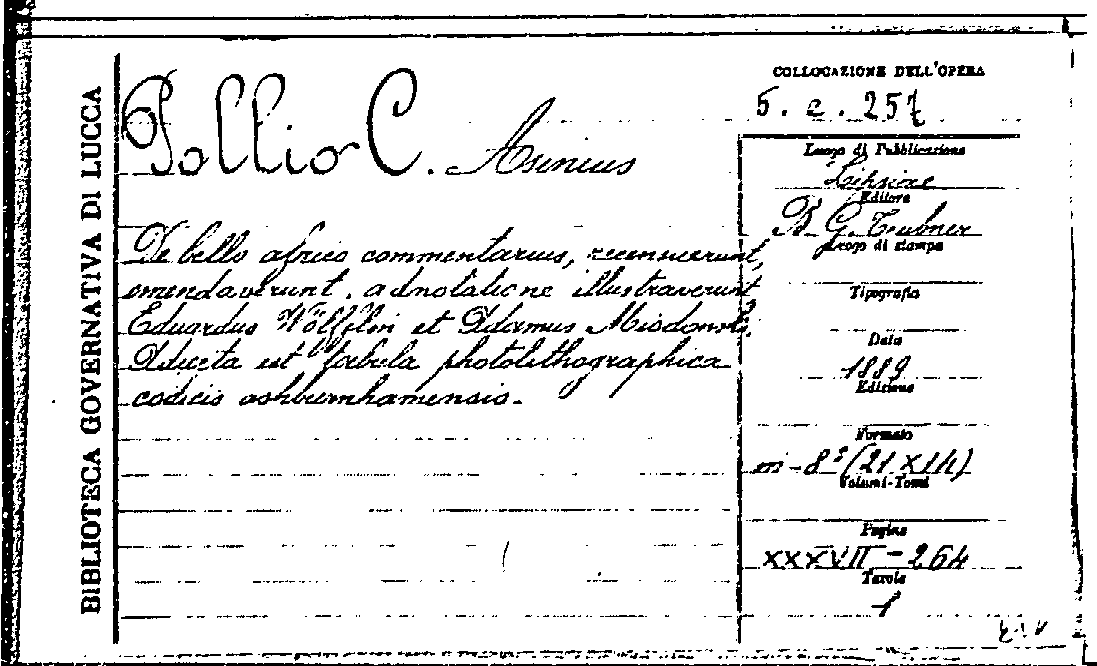 BIBLIOTECA GOVERNATIVA DI LUCCA
Pollio C. Asinius
De bello africo commentarius, recensuerunt,
emendaverunt, adnotatione illustraverunt
Eduardus Wölfflin et Adamus Miodonski.
Adiecta est tabula photolithographica
codicis ashburnhamensis.
COLLOCAZIONE DELL'OPERA
5. c. 257
Luogo di Pubblicazione
Lipsiae
Editore
B. G. Teubner
Luogo di stampa
Tipografia
Data
1889
Edizione
Formato
in-8° (21 x 14)
Volumi-Tomi
Pagine
XXXVII - 264
Tavole
1